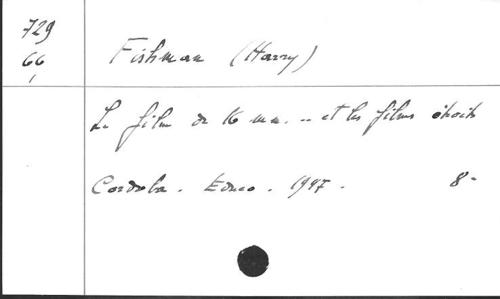 729
66
Fishman (Harry)
Le film de 16 mm. .. et les films étroits
Cordoba. Educo. 1947. 8°